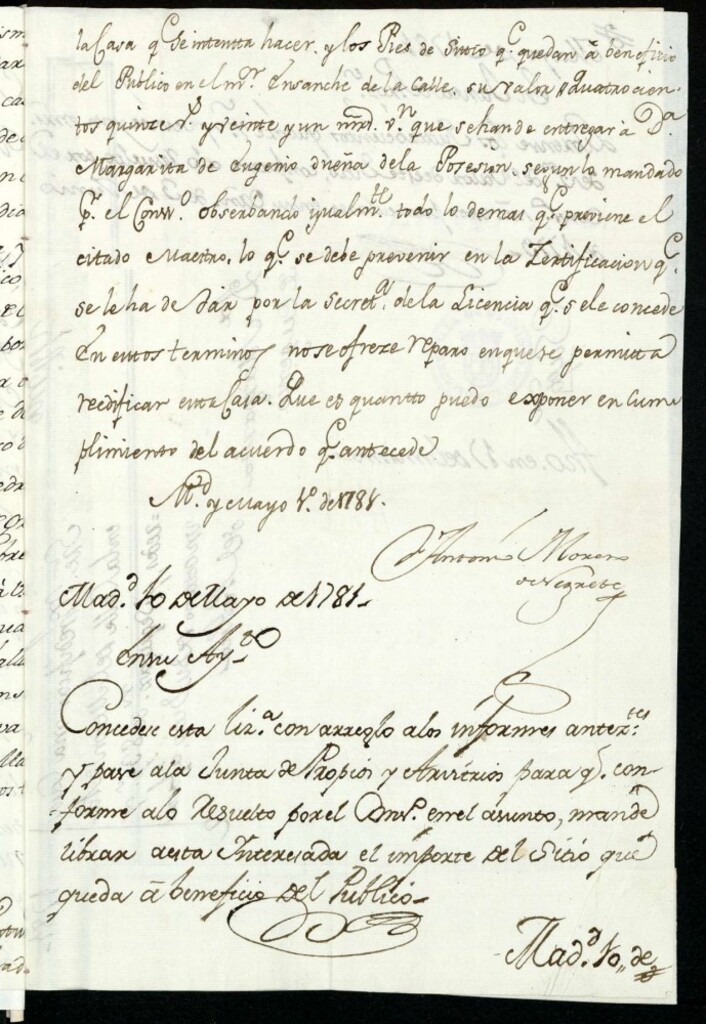 la Casa q.e se intentta hacer, y los Pies de Sittio q.e quedan â beneficio
del Publico en el m.r Ensanche de la Calle, su valor quattrocien-
tos quinze r.s y veinte y un mrd. v.n que se han de entregar à D.a
Margarita de Eugenio dueña de la Posesion, segun lo mandado
p.r el Cons.o observando igualm.te todo lo demas q.e previene el
citado Maestro, lo q.e se debe prevenir en la Zertificacion q.e
se le ha de dar por la Secret.a de la Licencia q.e se le concede
En estos terminos no se ofreze reparo en que se permitta
reedificar esta Casa. Que es quantto puedo exponer en Cum-
plimiento del acuerdo q.e antecede
M.d y Mayo 1.o de 1781.
Antonio Moreno
de Negrete
Mad.d 10 de Mayo de 1781.
En su Ay.to
Concedese esta liz.a con arreglo a los informes anter.tes
y pase a la Junta de Propios y Arvitrios para q.e con-
forme a lo Resuelto por el Cons.o en el asunto, mande
librar a esta Interesada el importe del Sitio que
queda â beneficio del Publico
Mad.d 10,, de